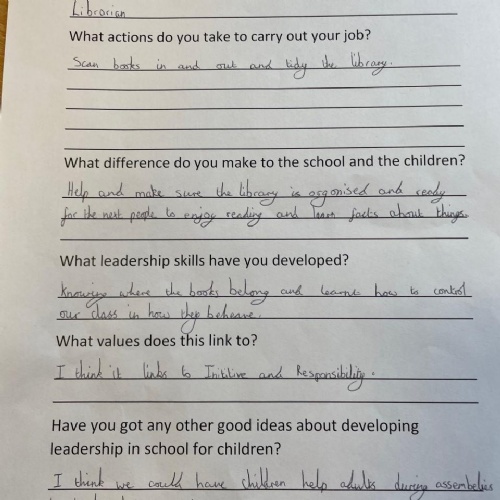 Librarian
What actions do you take to carry out your job?
Scan books in and out and tidy the library.
What difference do you make to the school and the children?
Help and make sure the library is organised and ready
for the next people to enjoy reading and learn facts about things.
What leadership skills have you developed?
Knowing where the books belong and learnt how to control
our class in how they beheave.
What values does this link to?
I think it links to Inititive and Responsibility.
Have you got any other good ideas about developing
leadership in school for children?
I think we could have children help adults during assembelies